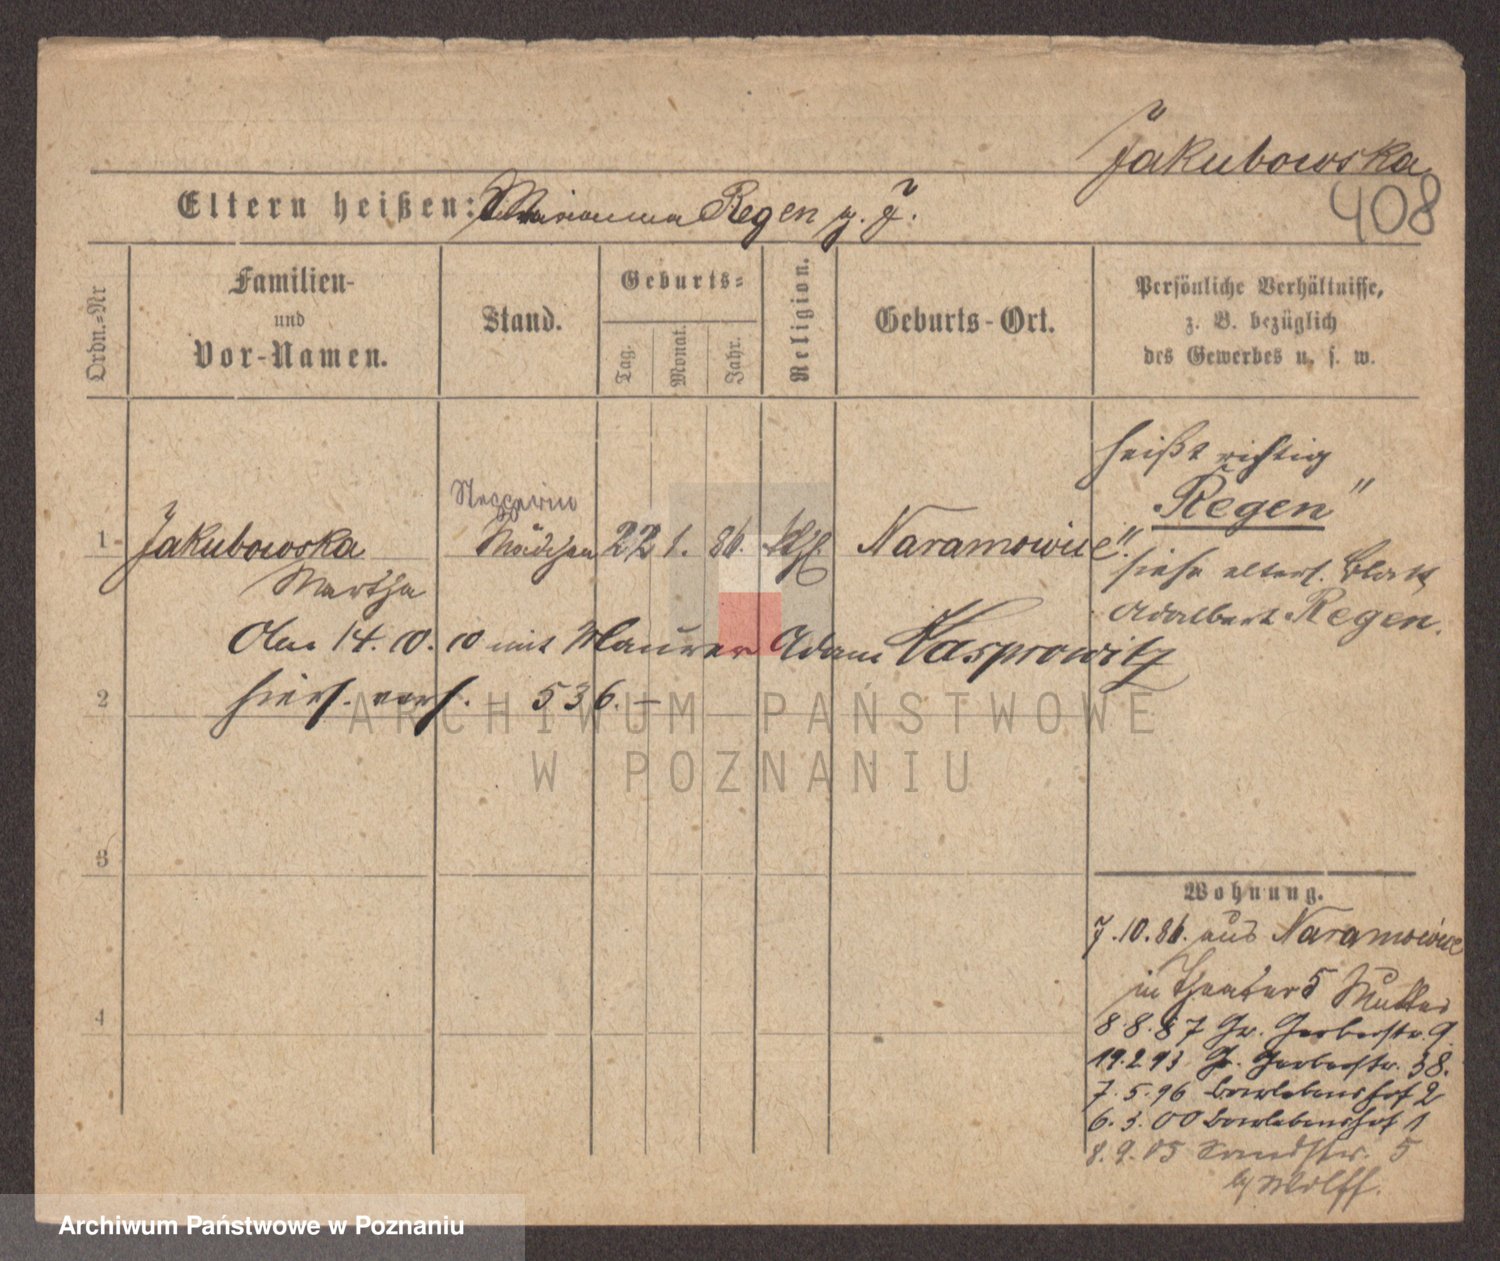 Jakubowska
408
Eltern heißen: Marianna Regen g. J.
Ordn.-Nr
Familien-
und
Vor-Namen.
Stand.
Geburts-
Tag.
Monat.
Jahr.
Religion.
Geburts-Ort.
Persönliche Verhältnisse,
z. B. bezüglich
des Gewerbes u. s. w.
heißt richtig
"Regen"
1 Jakubowska Mädchen 22 1. 86. kth. Naramowice
siehe elterl. Blatt
Martha
Adalbert Regen.
Am 14.10.10 mit Maurer Adam Kasprowitz
2 hiers. verh. 536. —
ARCHIWUM PAŃSTWOWE
W POZNANIU
3
4
Wohnung.
7.10.86. aus Naramowice
in Theater 5 Mutter
8 8.87 Gr. Gerberstr. 9
19.2.93 Gr. Gerberstr. 38.
7.5.96 Bernhardinerhof 2
6.3.00 1
8.9.05 Sandstr. 5
by Wolff.
Archiwum Państwowe w Poznaniu